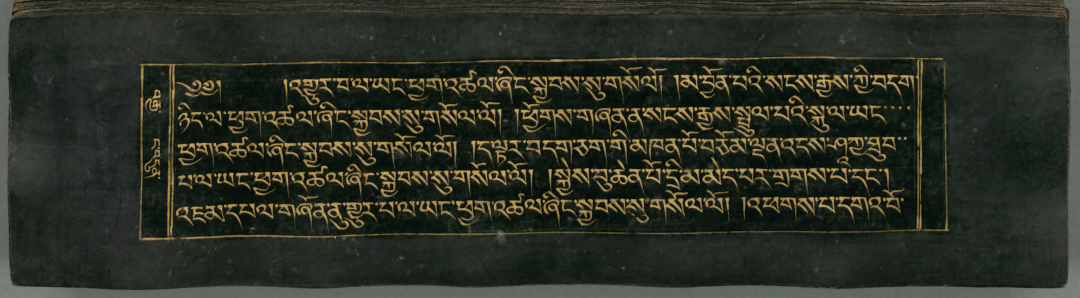 ༄༅། །འགྱུར་བ་ལ་ཡང་ཕྱག་འཚལ་ཞིང་སྐྱབས་སུ་གསོལ་ལོ། །མ་བྱོན་པའི་སངས་རྒྱས་ཀྱི་བདག་
ཉིད་ལ་ཕྱག་འཚལ་ཞིང་སྐྱབས་སུ་གསོལ་ལོ། །ཕྱོགས་གཞན་ན་སངས་རྒྱས་སྤྲུལ་པའི་སྐུ་ལ་ཡང་
ཕྱག་འཚལ་ཞིང་སྐྱབས་སུ་གསོལ་ལོ། །ད་ལྟར་བདག་ཅག་གི་མཁན་པོ་བཅོམ་ལྡན་འདས་ཤཀྱ་ཐུབ་
པ་ལ་ཡང་ཕྱག་འཚལ་ཞིང་སྐྱབས་སུ་གསོལ་ལོ། །སྐྱེས་བུ་ཆེན་པོ་དྲི་མ་མེད་པར་གྲགས་པ་དང་།
འཇམ་དཔལ་གཞོན་ནུ་གྱུར་པ་ལ་ཡང་ཕྱག་འཚལ་ཞིང་སྐྱབས་སུ་གསོལ་ལོ། །འཕགས་པ་དགའ་བོ་